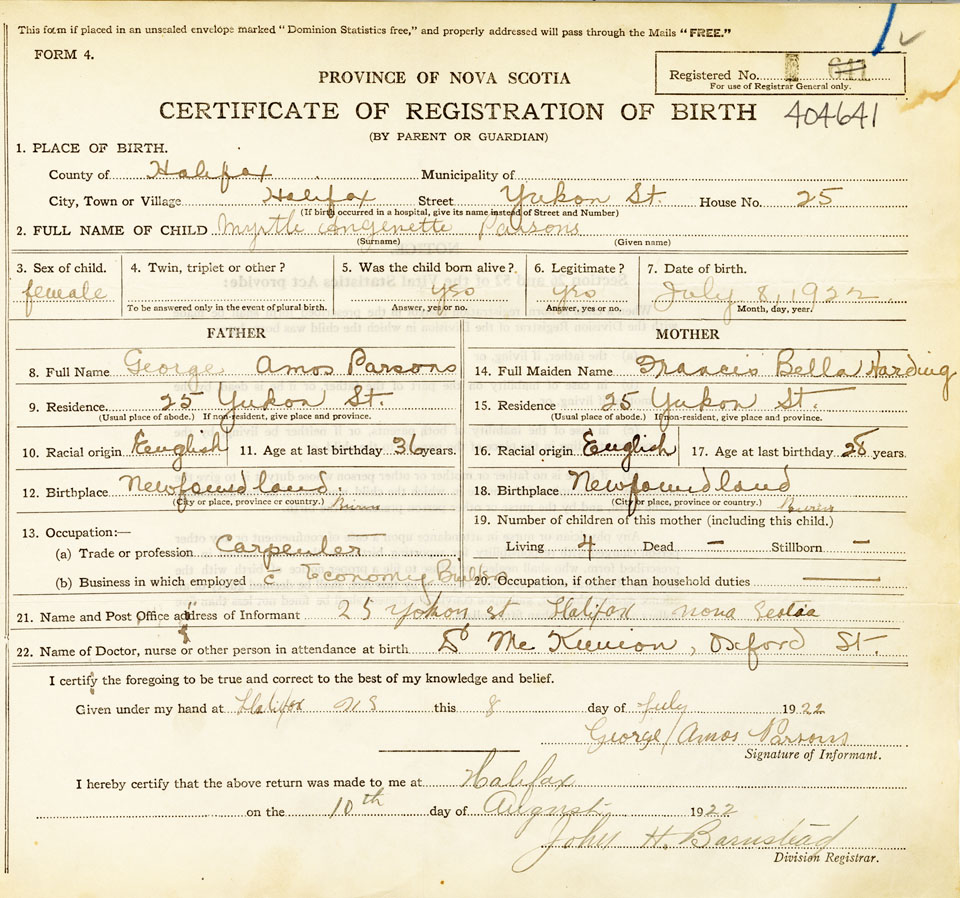 This form if placed in an unsealed envelope marked "Dominion Statistics free," and properly addressed will pass through the Mails "FREE."
FORM 4.
PROVINCE OF NOVA SCOTIA
Registered No. 641
For use of Registrar General only.
CERTIFICATE OF REGISTRATION OF BIRTH 404641
(BY PARENT OR GUARDIAN)
1. PLACE OF BIRTH.
County of Halifax Municipality of
City, Town or Village Halifax Street Yukon St. House No. 25
(If birth occurred in a hospital, give its name instead of Street and Number)
2. FULL NAME OF CHILD Myrtle Angenette Parsons
(Surname) (Given name)
3. Sex of child. 4. Twin, triplet or other? 5. Was the child born alive? 6. Legitimate? 7. Date of birth.
female yes yes July 8, 1922
To be answered only in the event of plural birth. Answer, yes or no. Answer, yes or no. Month, day, year.
FATHER MOTHER
8. Full Name George Amos Parsons 14. Full Maiden Name Francis Bella Harding
9. Residence. 25 Yukon St. 15. Residence 25 Yukon St.
(Usual place of abode.) If non-resident, give place and province. (Usual place of abode.) If non-resident, give place and province.
10. Racial origin English 11. Age at last birthday 36 years. 16. Racial origin English 17. Age at last birthday 28 years.
12. Birthplace Newfoundland. 18. Birthplace Newfoundland
(City or place, province or country.) Burin (City or place, province or country.) Burin
13. Occupation:— 19. Number of children of this mother (including this child.)
(a) Trade or profession Carpenter Living 4 Dead – Stillborn –
(b) Business in which employed c Economy Builders 20. Occupation, if other than household duties —
21. Name and Post Office address of Informant 25 Yokon st Halifax nova Scotia
22. Name of Doctor, nurse or other person in attendance at birth Dr Mc , Oxford St.
I certify the foregoing to be true and correct to the best of my knowledge and belief.
Given under my hand at Halifax NS this 8 day of July 1922
George Amos Parsons
Signature of Informant.
I hereby certify that the above return was made to me at Halifax
on the 10th day of August 1922
John H. Barnstead
Division Registrar.